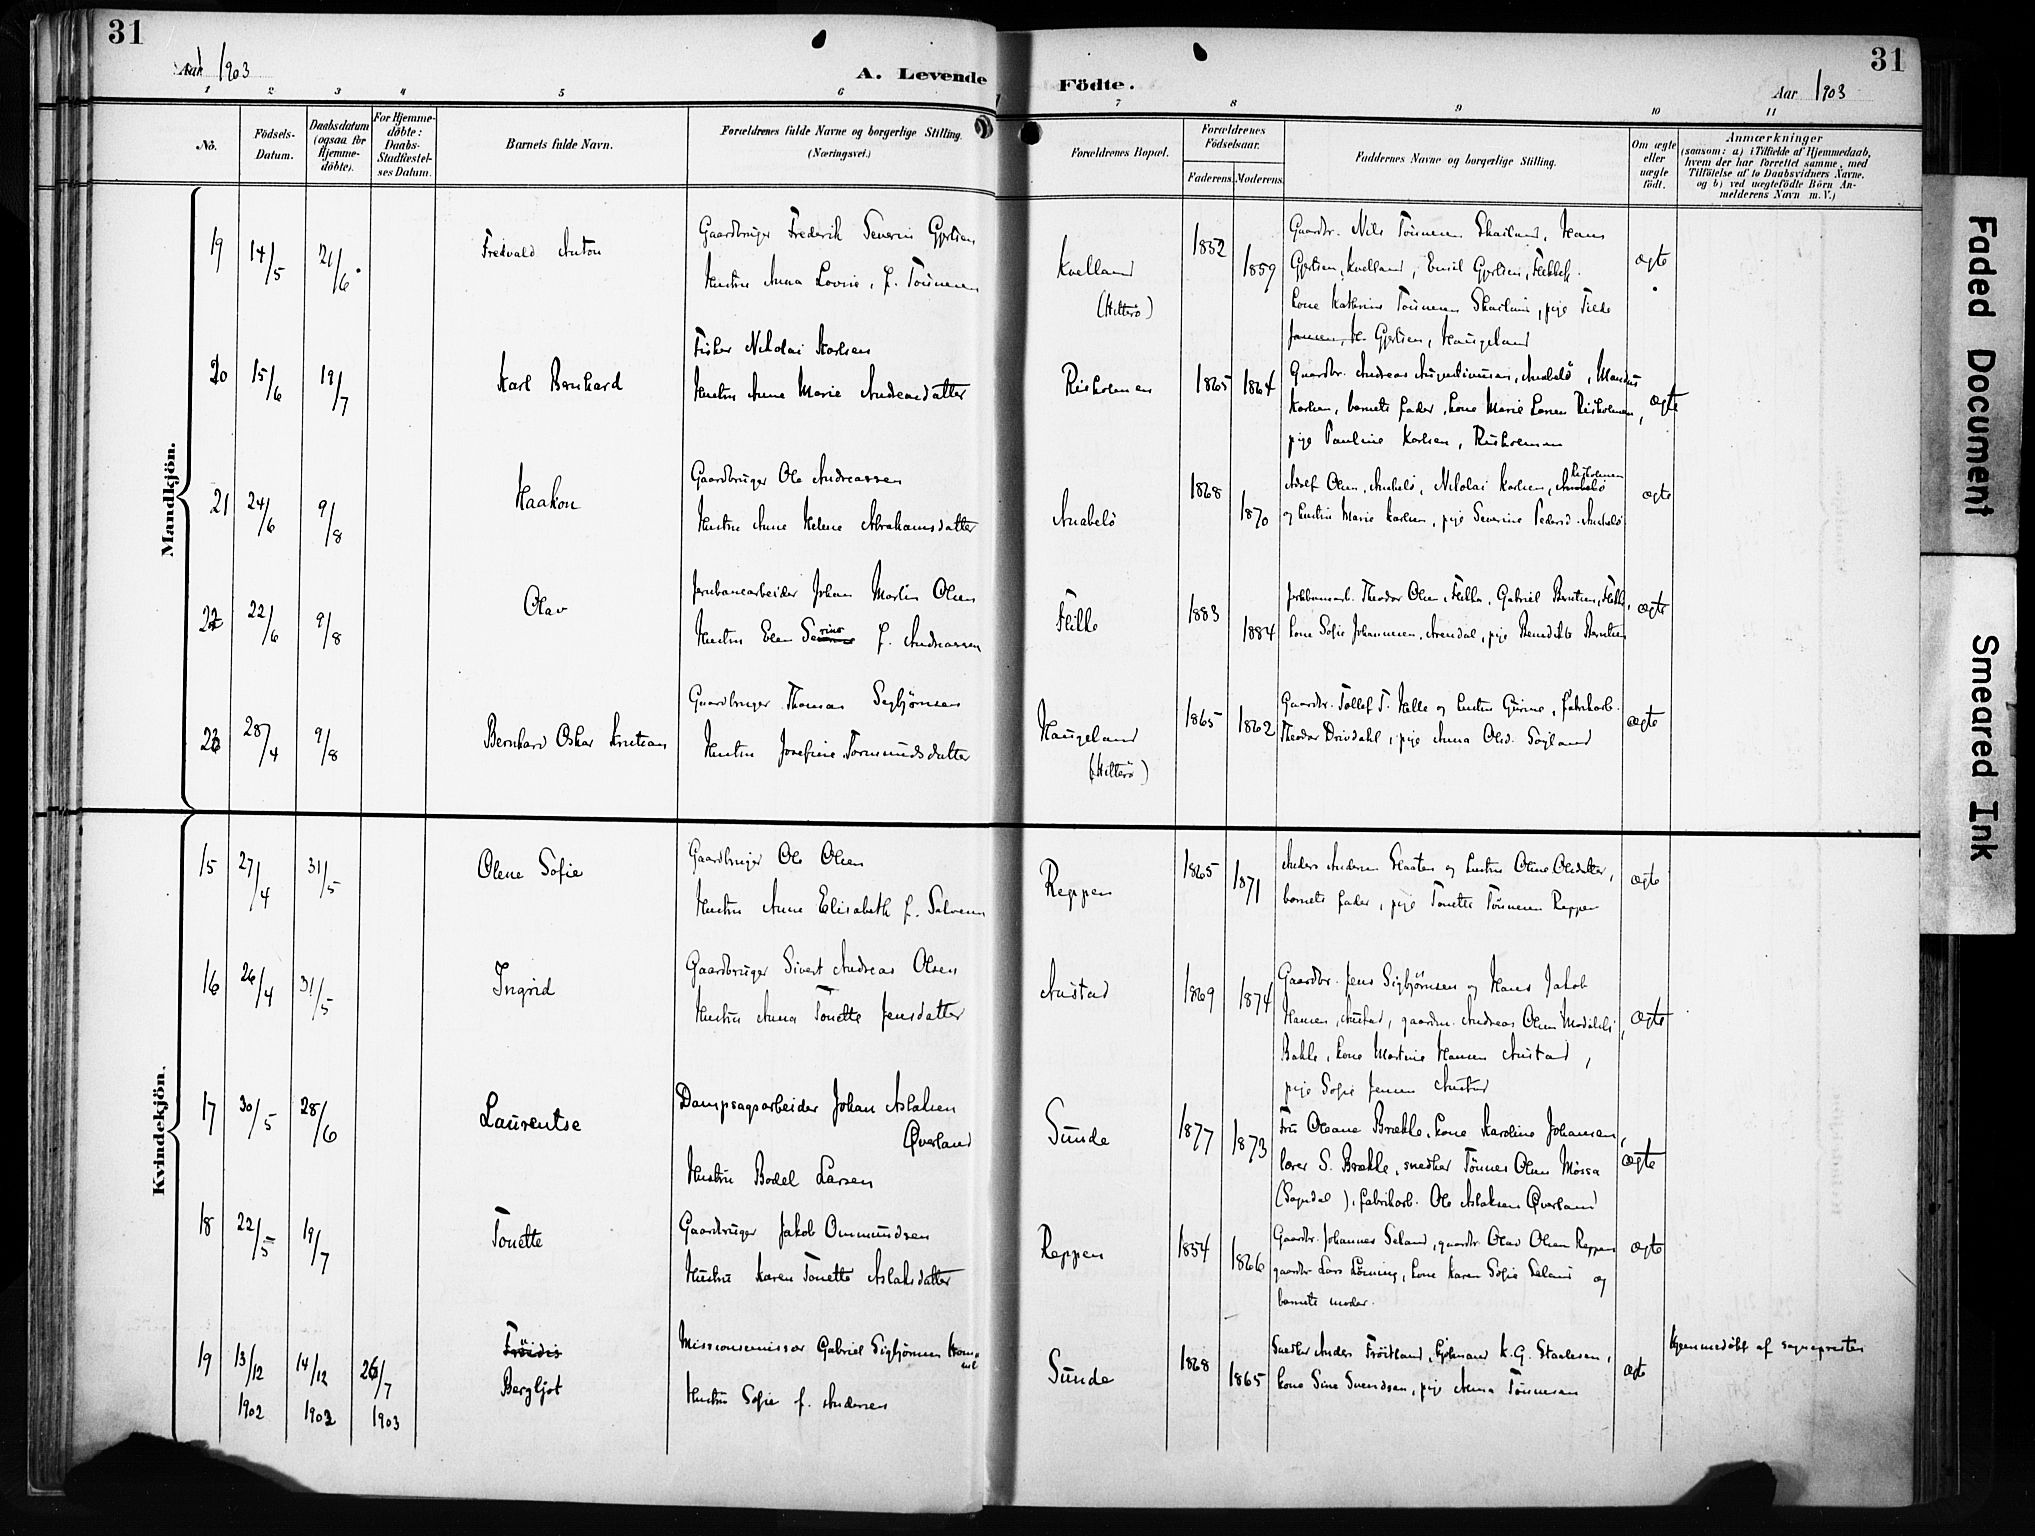 31
Aar 1903
A. Levende
Födte.
Aar 1903
31
1 2 3 4 5 6 7 8 9 10 11
No.
Födsels-Datum.
Daabsdatum (ogsaa for Hjemme-döbte).
For Hjemme-döbte: Daabs-Stadfæstel-ses Datum.
Barnets fulde Navn.
Forældrenes fulde Navne og borgerlige Stilling. (Næringsvei.)
Forældrenes Bopæl.
Forældrenes Födselsaar.
Faderens. Moderens.
Faddernes Navne og borgerlige Stilling.
Om ægte eller uægte födt.
Anmærkninger
(saasom: a) i Tilfælde af Hjemmedaab,
hvem der har forrettet samme, med
Tilföielse af to Daabsvidners Navne.
og b) ved uægtefödte Börn An-
melderens Navn m. V.)
Mandkjön.
19 14/5 21/6 Fredvald Anton
Gaardbruger Frederik Severin Gjertsen
Hustru Anna Lovise, f. Tönnesen
Kvelland
(Hitterö)
1852 1859
Gaardbr. Nils Tönnesen Skailand, Hans
Gjertsen, Kvelland, Emil Gjertsen, Flekkefj.
kone Kathrine Tönnesen Skailand, pige Tilde
Jansen, H. Gjertsen, Haugeland
ægte
20 15/6 19/7 Karl Bernhard
Fisker Nikolai Karlsen
Hustru Anne Marie Andreasdatter
Risholmen
1865 1864
Gaardbr. Andreas Anabelö, Mandius
Karlsen, barnets fader, kone Marie Larsen Risholmen,
pige Pauline Karlsen, Risholmen
ægte
21 24/6 9/8 Haakon
Gaardbruger Ole Andreassen
Hustru Anne Helene Abrahamsdatter
Anabelö
1868 1870
Adolf Olsen, Anabelö, Nikolai Karlsen, Anabelö Risholmen
og hustru Marie Karlsen, pige Severine Pedersd. Anabelö
ægte
22 22/6 9/8 Olav
Jernbanearbeider Johan Martin Olsen
Hustru Elen Serine f. Andreassen
Flikke
1883 1884
Jernbanearb. Theodor Olsen, Flikke, Gabriel Berntsen, Flikke,
kone Sofie Johannesen, Arendal, pige Benedikte Berntsen
ægte
23 28/4 9/8 Bernhard Oskar Knutean
Gaardbruger Thomas Sigbjörnsen
Hustru Josefine Tormundsdatter
Haugeland
(Hitterö)
1865 1862
Gaardbr. Tollef T. Helle og hustru Gurine, fabrikarb.
Theodor Drivdahl, pige Anna Olsd. Sogland
ægte
Kvindekjön.
15 27/4 31/5 Olene Sofie
Gaardbruger Ole Olsen
Hustru Anne Elisabeth f. Salvesen
Reppen
1865 1871
Anders Andersen Slaaten og hustru Oline Olsdatter,
barnets fader, pige Tonette Tönnesen Reppen
ægte
16 26/4 31/5 Ingrid
Gaardbruger Sivert Andreas Olsen
Hustru Anna Tonette Jensdatter
Austad
1869 1874
Gaardbr. Jens Sigbjörnsen og Hans Jakob
Hansen, Austad, gaardm. Andreas Olsen
Bakke, kone Martine Hansen Austad,
pige Sofie Jensen Austad
ægte
17 30/5 28/6 Laurentse
Dampsagsarbeider Johan Aslaksen
Øverland
Hustru Bodel Larsen
Sunde
1877 1873
Fru Oleane Brække, kone Karoline Johansen,
lærer S. Brække, snedker Tönnes Olsen Mossa
(Sogndal), fabrikarb. Ole Aslaksen Øverland
ægte
18 22/5 19/7 Tonette
Gaardbruger Jakob Ommundsen
Hustru Karen Tonette Aslaksdatter
Reppen
1854 1866
Gaardbr. Johannes Seland, gaardbr. Olav Olsen Reppen
gaardbr. Lars Lörning, kone Karen Sofie Seland og
barnets moder.
ægte
19 13/12 1902 14/12 1902 26/7 1903 Fröidis
Bergljot
Missionsemissær Gabriel Sigbjörnsen
Hustru Sofie f. Andersen
Sunde
1868 1865
Snedker Anders Fröitland, K. G. Staalesen,
kone Sina Svendsen, pige Anna Tönnesen
ægte
Hjemmedöbt af sognepresten
Faded Document
Smeared Ink